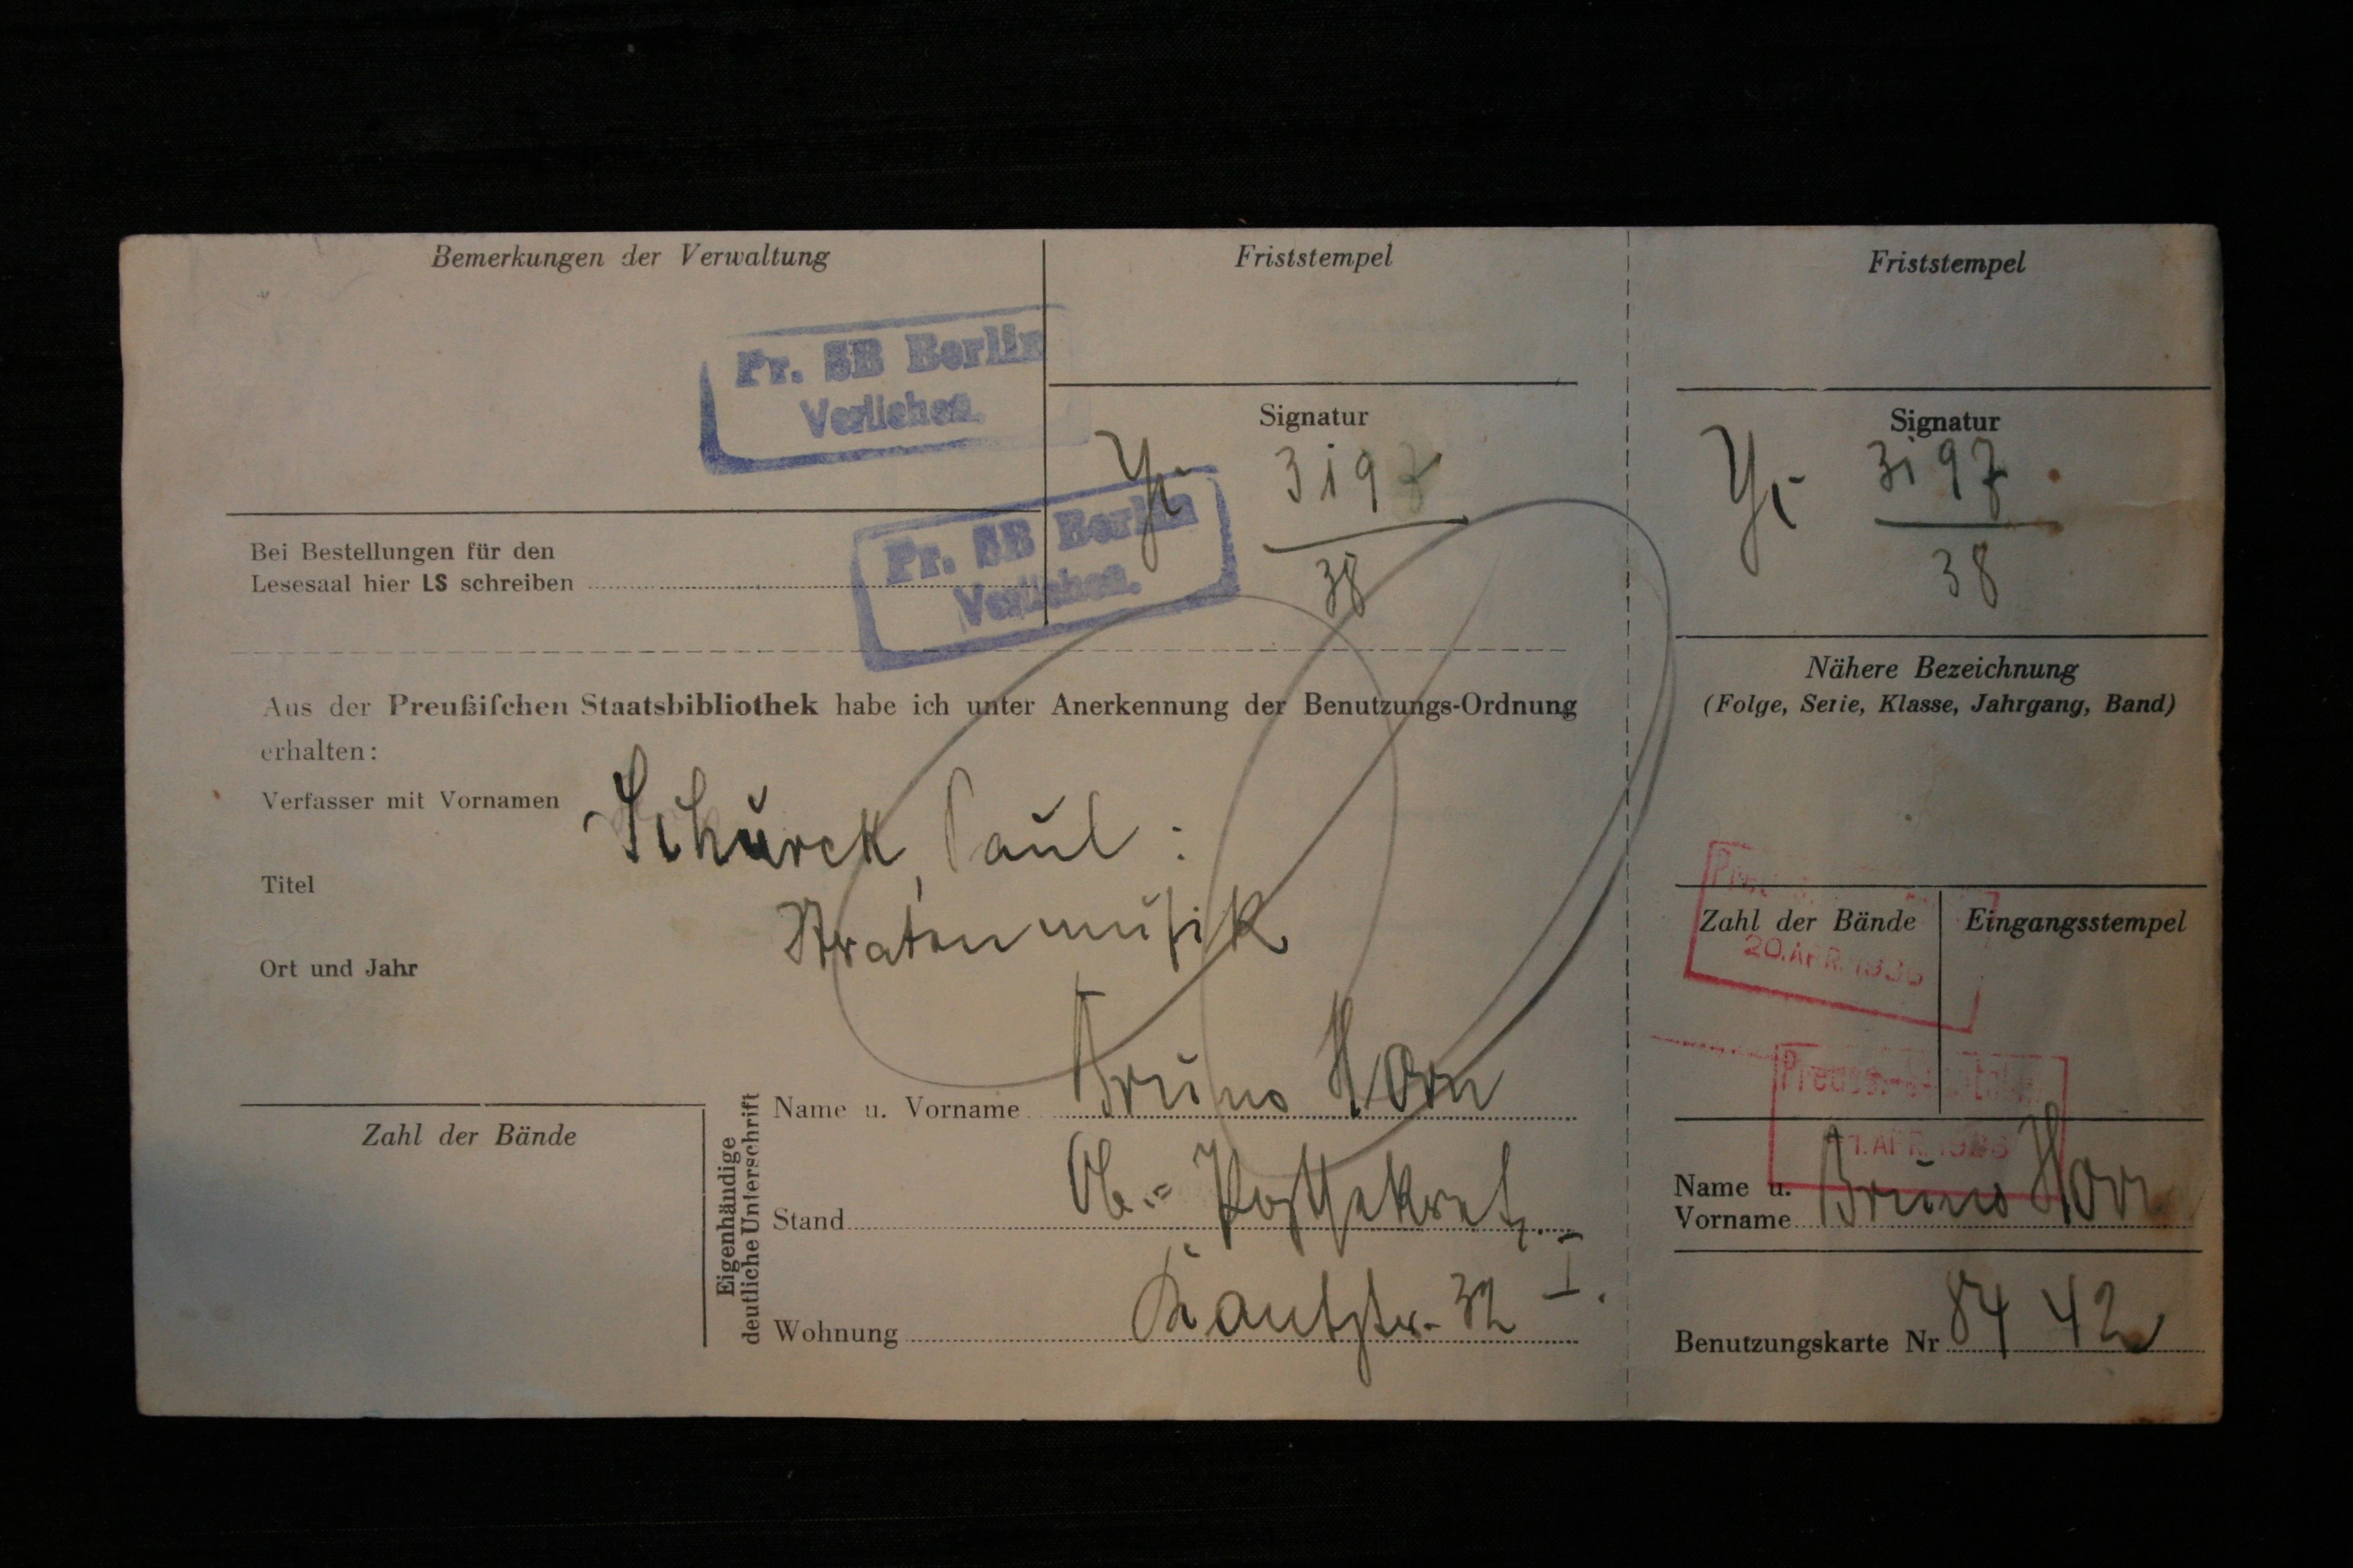 Bemerkungen der Verwaltung
Pr. SB Berlin
Verliehen.
Bei Bestellungen für den
Lesesaal hier LS schreiben
Pr. SB Berlin
Verliehen.
Friststempel
Signatur
3197
38
Aus der Preußiſchen Staatsbibliothek habe ich unter Anerkennung der Benutzungs-Ordnung
erhalten:
Verfasser mit Vornamen Schurek, Paul:
Titel Stratenmusik
Ort und Jahr
Zahl der Bände
Eigenhändige
deutliche Unterschrift
Name u. Vorname Bruno Horn
Stand Ob.= Postsekret.
Wohnung 32 I.
Friststempel
Signatur
3197
38
Nähere Bezeichnung
(Folge, Serie, Klasse, Jahrgang, Band)
Zahl der Bände
Eingangsstempel
20. APR. 1936
APR. 1936
Name u.
Vorname Bruno Horn
Benutzungskarte Nr 8442